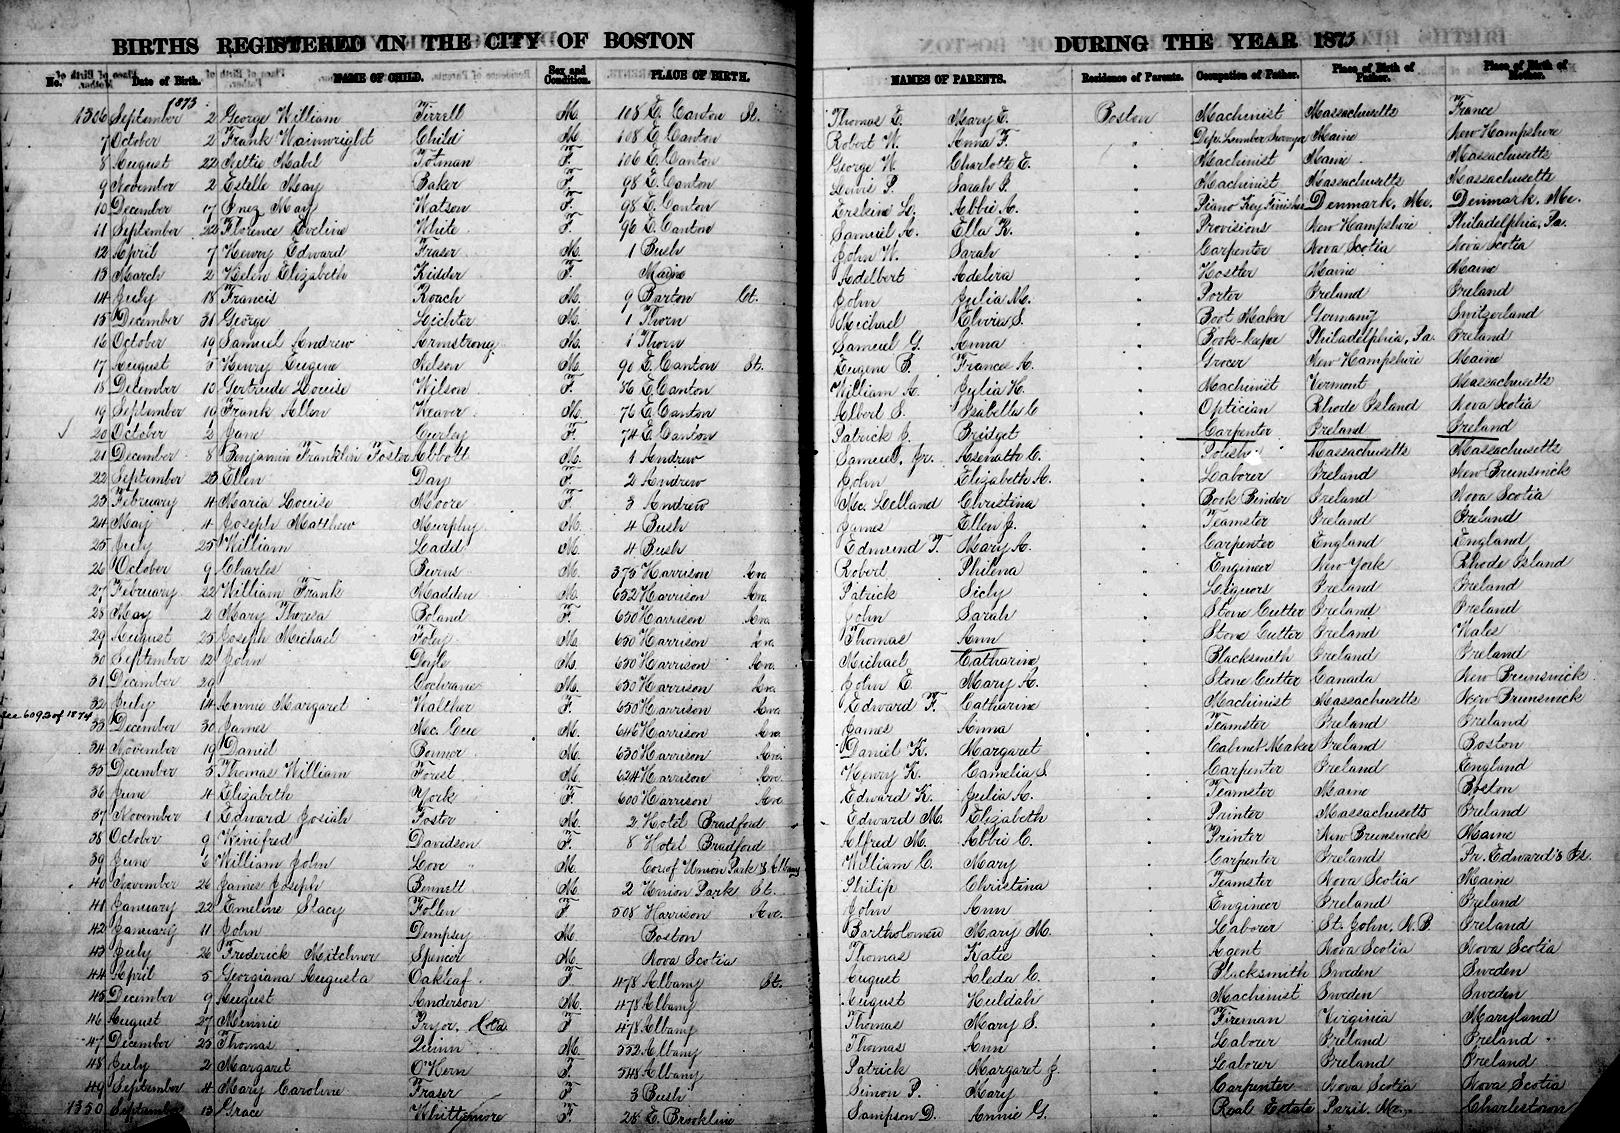 BIRTHS REGISTERED IN THE CITY OF BOSTON DURING THE YEAR 1873
No. Date of Birth. NAME OF CHILD. Sex and Condition. PLACE OF BIRTH. NAMES OF PARENTS. Residence of Parents. Occupation of Father. Place of Birth of Father. Place of Birth of Mother.
1873
1306 September 2 George William Tirrell M. 108 E. Canton St. Thomas E. Mary E. Boston Machinist Massachusetts France
7 October 2 Frank Wainwright Childs M. 108 E. Canton Robert W. Anna F. " Dep. Lumber Surveyor Maine New Hampshire
8 August 22 Nettie Mabel Totman F. 106 E. Canton George W. Charlotte E. " Machinist Maine Massachusetts
9 November 2 Estelle May Baker F. 98 E. Canton Lewis P. Sarah P. " Machinist Massachusetts Massachusetts
10 December 17 Inez May Watson F. 98 E. Canton Erskine H. Abbie A. " Piano Key Finisher Denmark, Me. Denmark, Me.
11 September 22 Florence Eveline White F. 96 E. Canton Samuel A. Ella K. " Provisions New Hampshire Philadelphia, Pa.
12 April 7 Henry Edward Fraser M. 1 Bush John W. Sarah " Carpenter Nova Scotia Nova Scotia
13 March 2 Helen Elizabeth Kidder F. Maine Adelbert " Hostler Maine Maine
14 July 18 Francis Roach M. 9 Barton Ct. John Julia M. " Porter Ireland Ireland
15 December 31 George Lichter M. 1 Thorn Michael Elvira S. " Boot Maker Germany Switzerland
16 October 19 Samuel Andrew Armstrong M. 1 Thorn Samuel G. Anna " Book-keeper Philadelphia, Pa. Ireland
17 August 5 Henry Eugene Nelson M. 90 E. Canton St. Eugene B. Frances A. " Grocer New Hampshire Maine
18 December 10 Gertrude Louise Wilson F. 86 E. Canton William A. Julia H. " Machinist Vermont Massachusetts
19 September 19 Frank Allen Weaver M. 76 E. Canton Albert S. Isabella C " Optician Rhode Island Nova Scotia
20 October 2 Jane Curley F. 74 E. Canton Patrick J. Bridget " Carpenter Ireland Ireland
21 December 8 Benjamin Franklin Foster Abbott M. 1 Andrew Samuel, Jr. Asenath C. " Massachusetts Massachusetts
22 September 23 Ellen Day F. 2 Andrew John Elizabeth A. " Laborer Ireland New Brunswick
23 February 4 Maria Louise Moore F. 3 Andrew Mc. Lelland Christina " Book Binder Ireland Nova Scotia
24 May 4 Joseph Matthew Murphy M. 4 Bush James Ellen J. " Teamster Ireland Ireland
25 July 25 William Ladd M. 4 Bush Edmund T. Mary A. " Carpenter England England
26 October 9 Charles Burns M. 375 Harrison Ave Robert Philena " Engineer New York Rhode Island
27 February 22 William Frank Madden M. 652 Harrison Ave. Patrick Sicly " Liquors Ireland Ireland
28 May 2 Mary Theresa Boland F. 650 Harrison Ave. John Sarah " Stone Cutter Ireland Ireland
29 August 25 Joseph Michael Foley M. 650 Harrison Ave. Thomas Ann " Stone Cutter Ireland Wales
30 September 12 John Doyle M. 650 Harrison Ave. Michael Catharine " Blacksmith Ireland Ireland
31 December 29 Cochrane M. 650 Harrison Ave. John E. Mary A. " Stone Cutter Canada New Brunswick
32 July 14 Annie Margaret Walther F. 650 Harrison Ave. Edward F. Catharine " Machinist Massachusetts New Brunswick
See 6092 of 1874
33 December 30 James Mc. Cue M. 646 Harrison Ave. James Anna " Teamster Ireland Ireland
34 November 19 Daniel Bonner M. 630 Harrison Ave. Daniel K. Margaret " Cabinet Maker Ireland Boston
35 December 5 Thomas William Forest M. 624 Harrison Ave. Henry K. Camelia S " Carpenter Ireland England
36 June 4 Elizabeth York F. 600 Harrison Ave Edward K. Julia A. " Teamster Maine Boston
37 November 1 Edward Josiah Foster M. 2 Hotel Bradford Edward M. Elizabeth " Printer Massachusetts Ireland
38 October 9 Winifred Davidson F. 8 Hotel Bradford Alfred M. Abbie C. " Printer New Brunswick Maine
39 June 6 William John Love M. Cor of Union Park & Albany William C. Mary " Carpenter Ireland Pr. Edward's Is.
40 November 26 James Joseph Bennett M. 2 Union Park St. Philip Christina " Teamster Nova Scotia Maine
41 January 22 Emeline Stacy Follen F. 508 Harrison Ave. John Ann " Engineer Ireland Ireland
42 January 11 John Dempsey M. Boston Bartholomew Mary M. " Laborer St. John, N.B. Ireland
43 July 26 Frederick Mitchner Spencer M. Nova Scotia Thomas Katie " Agent Nova Scotia Nova Scotia
44 April 5 Georgiana Augusta Oakleaf F. 478 Albany St. August Aleda C. " Blacksmith Sweden Sweden
45 December 9 August Anderson M. 478 Albany August Huldah " Machinist Sweden Sweden
46 August 27 Minnie Pryor. Cold F 478 Albany Thomas Mary S. " Fireman Virginia Maryland
47 December 25 Thomas Quinn M. 552 Albany Thomas Ann " Labourer Ireland Ireland
48 July 2 Margaret O'Hern F. 548 Albany Patrick Margaret J. " Laborer Ireland Ireland
49 September 4 Mary Caroline Fraser F 3 Bush Simon P. Mary " Carpenter Nova Scotia Nova Scotia
1350 September 13 Grace Whittemore F. 28 E. Brookline Sampson D. Annie G. " Real Estate Paris, Me. Charlestown